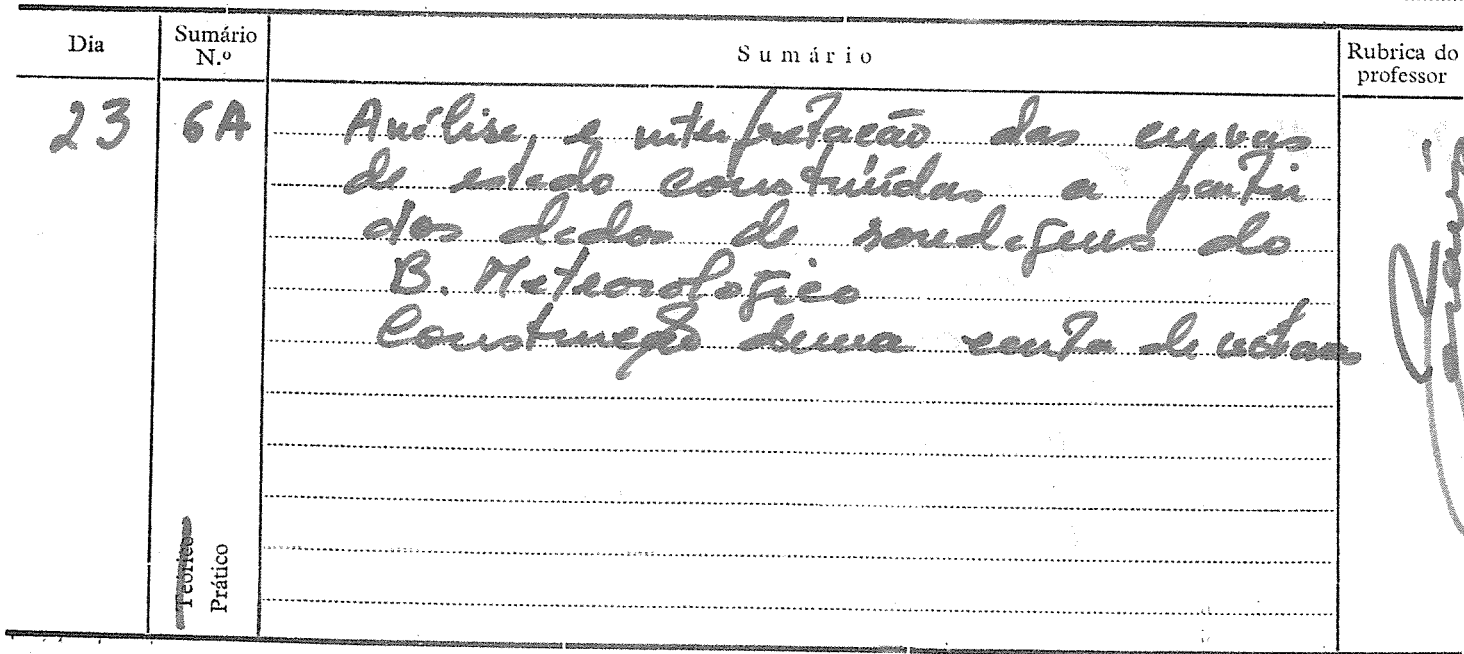 Dia
Sumário N.º
Sumário
Rubrica do professor
23
6A
Análise, e interpretação das curvas
de estado construídas a partir
dos dados de sondagens do
B. Meteorologico
Construção duma carta de
Teórico
Prático